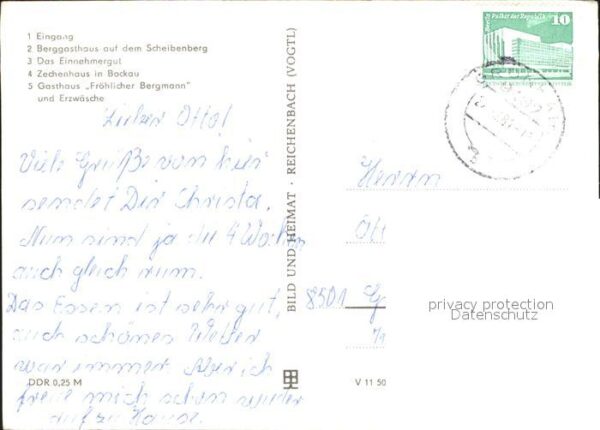 1 Eingang
2 Berggasthaus auf dem Scheibenberg
3 Das Einnehmergut
4 Zechenhaus in Bockau
5 Gasthaus „Fröhlicher Bergmann"
und Erzwäsche
Lieber Otto!
Viele Grüße von hier
sendet Dir Christa.
Nun sind ja die 4 Wochen
auch gleich rum.
Das Essen ist sehr gut,
auch schönes Wetter
war immer. Aber ich
freue mich schon wieder
auf zu Hause.
DDR 0,25 M
BILD UND HEIMAT · REICHENBACH (VOGTL)
V 11 50
Berlin Palast der Republik
10
Herrn
Ott
8501 G
privacy protection
Datenschutz